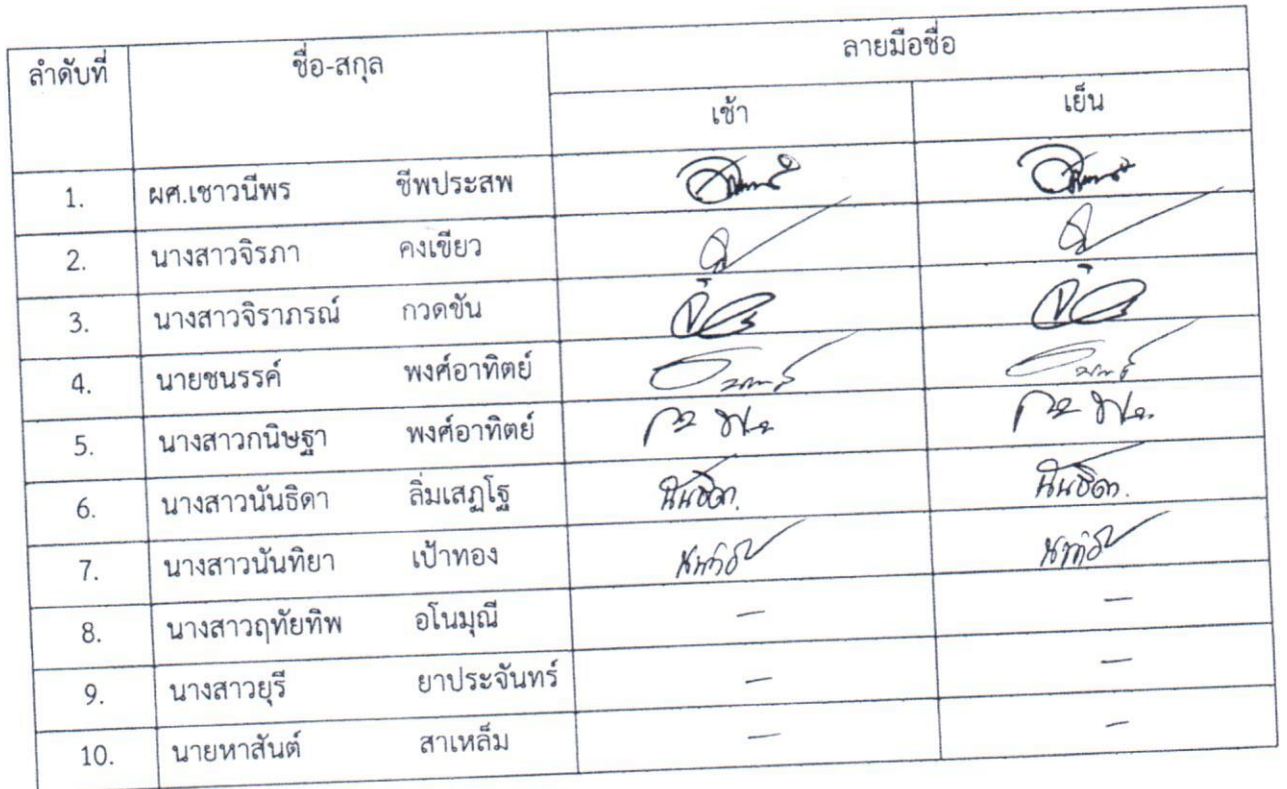 ลำดับที่ ชื่อ-สกุล ลายมือชื่อ
เช้า เย็น
1. ผศ.เชาวนีพร ชีพประสพ
2. นางสาวจิรภา คงเขียว
3. นางสาวจิราภรณ์ กวดขัน
4. นายชนรรค์ พงศ์อาทิตย์
5. นางสาวกนิษฐา พงศ์อาทิตย์
6. นางสาวนันธิดา ลิ่มเสฏโฐ นันธิดา. นันธิดา.
7. นางสาวนันทิยา เป้าทอง
8. นางสาวฤทัยทิพ อโนมุณี — —
9. นางสาวยุรี ยาประจันทร์ — —
10. นายหาสันต์ สาเหล็ม — —